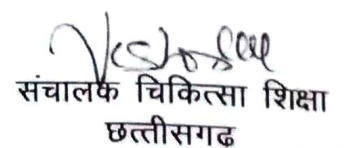 संचालक चिकित्सा शिक्षा
छत्तीसगढ